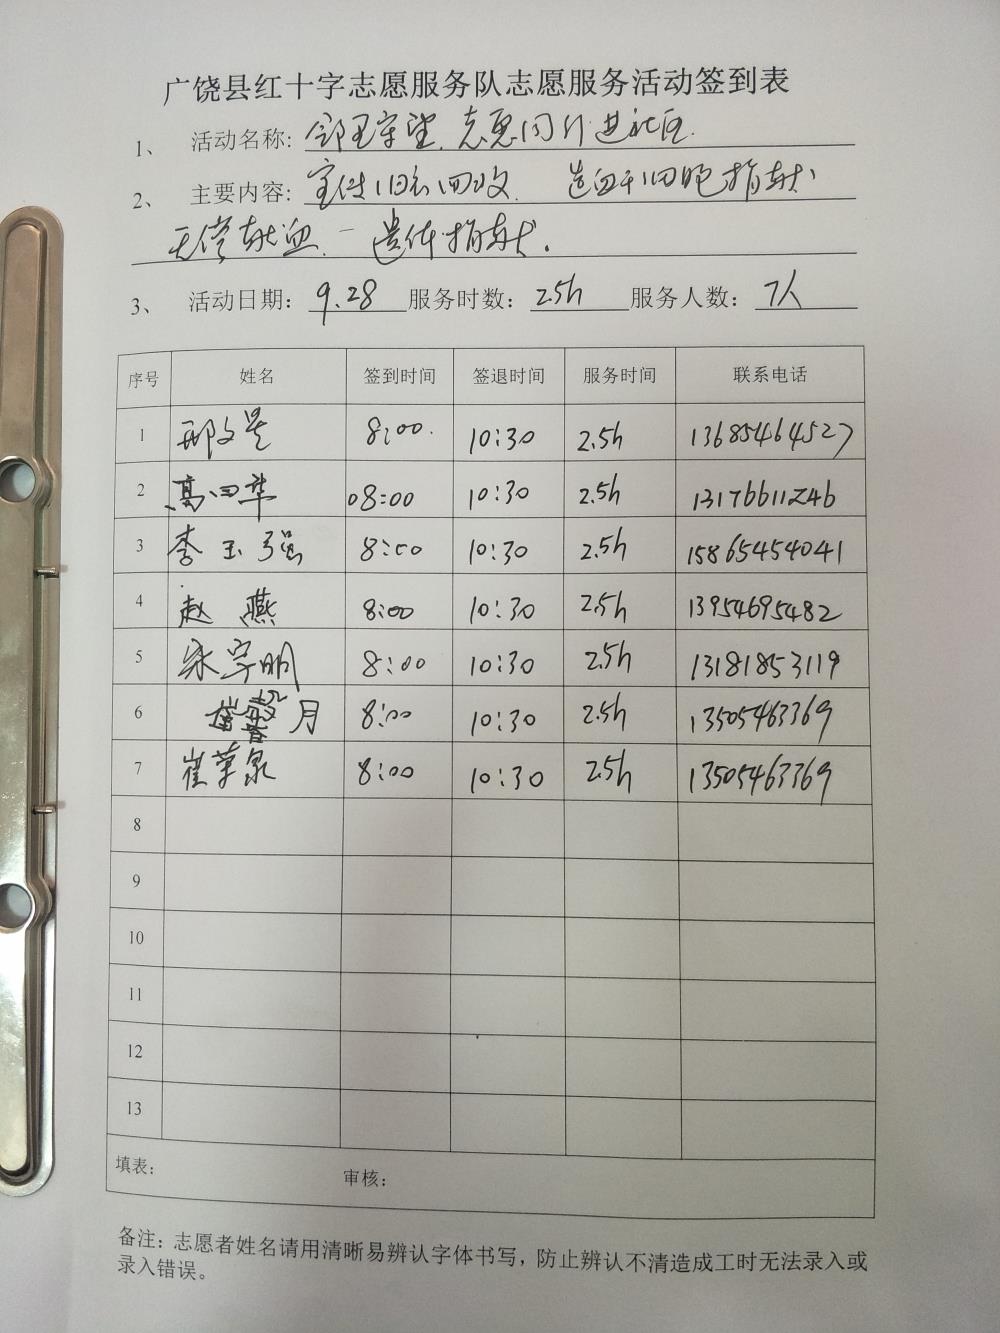 广饶县红十字志愿服务队志愿服务活动签到表
1、 活动名称: 邻里守望 志愿同行进社区
2、 主要内容: 旧衣回收 造血干细胞捐献
无偿献血 遗体捐献.
3、 活动日期: 9.28 服务时数: 2.5h 服务人数: 7人
序号 姓名 签到时间 签退时间 服务时间 联系电话
1 邢文 8:00. 10:30 2.5h 13685464527
2 高四华 08:00 10:30 2.5h 13176611246
3 李玉强 8:00 10:30 2.5h 15865454041
4 赵燕 8:00 10:30 2.5h 13954695482
5 宋字明 8:00 10:30 2.5h 13181853119
6 馨月 8:00 10:30 2.5h 13505463369
7 崔草泉 8:00 10:30 2.5h 13505463369
8
9
10
11
12
13
填表: 审核:
备注: 志愿者姓名请用清晰易辨认字体书写，防止辨认不清造成工时无法录入或
录入错误。